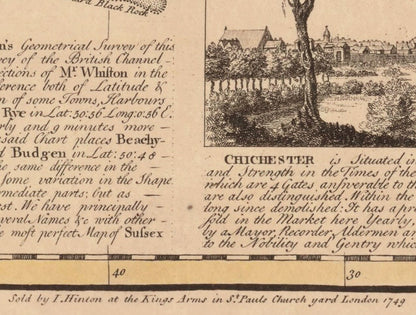 ard Black Rock
n's Geometrical Survey of this
vey of the British Channel
ections of Mr. Whiston in the
ference both of Latitude &
n of some Towns, Harbours
Rye in Lat: 50:56 Long: 0:56 E.
rly and 9 minutes more
said Chart places Beachy-
d Budgen in Lat: 50:48
he same difference in the
some variation in the Shape
rmediate parts; but as
est. We have principally
everal Names &c with other
e most perfect Map of Sussex
CHICHESTER is Situated i
and Strength in the Times of the
which are 4 Gates answerable to th
are also distinguished. Within the
long since demolished: It has a pr
sold in the Market here Yearly.
by a Mayor, Recorder, Aldermen an
to the Nobility and Gentry whic
40
30
Sold by I. Hinton at the Kings Arms in St. Pauls Church yard London 1749